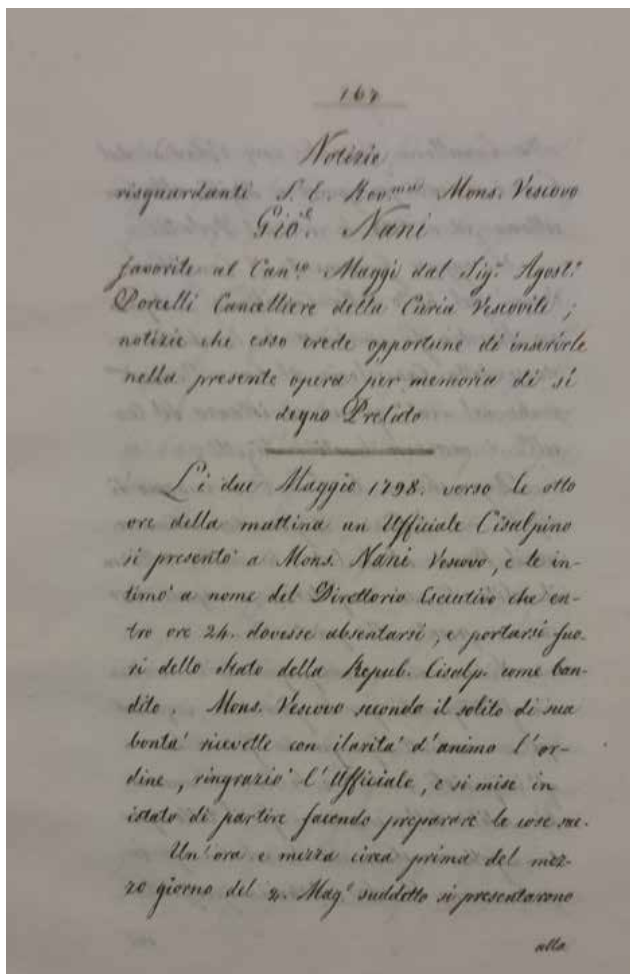 167
Notizie
risguardanti S. E. Rev.ma Mons. Vescovo
Gio.e Nani
favorite al Can.co Maggi dal Sig.r Agost.o
Porcelli Cancelliere della Curia Vescovile;
notizie che esso crede opportune di inserirle
nella presente opera per memoria di sì
degno Prelato
Li due Maggio 1798. verso le otto
ore della mattina un Ufficiale Cisalpino
si presentò a Mons. Nani Vescovo, e le in-
timò a nome del Direttorio Esecutivo che en-
tro ore 24. dovesse absentarsi, e portarsi fuo-
ri dello Stato della Repub. Cisalp. come ban-
dito. Mons. Vescovo secondo il solito di sua
bontà ricevette con ilarità d'animo l'or-
dine, ringraziò l'Ufficiale, e si mise in
istato di partire facendo preparare le cose sue.
Un'ora e mezza circa prima del mez-
zo giorno del 2. Mag.o suddetto si presentarono
alla